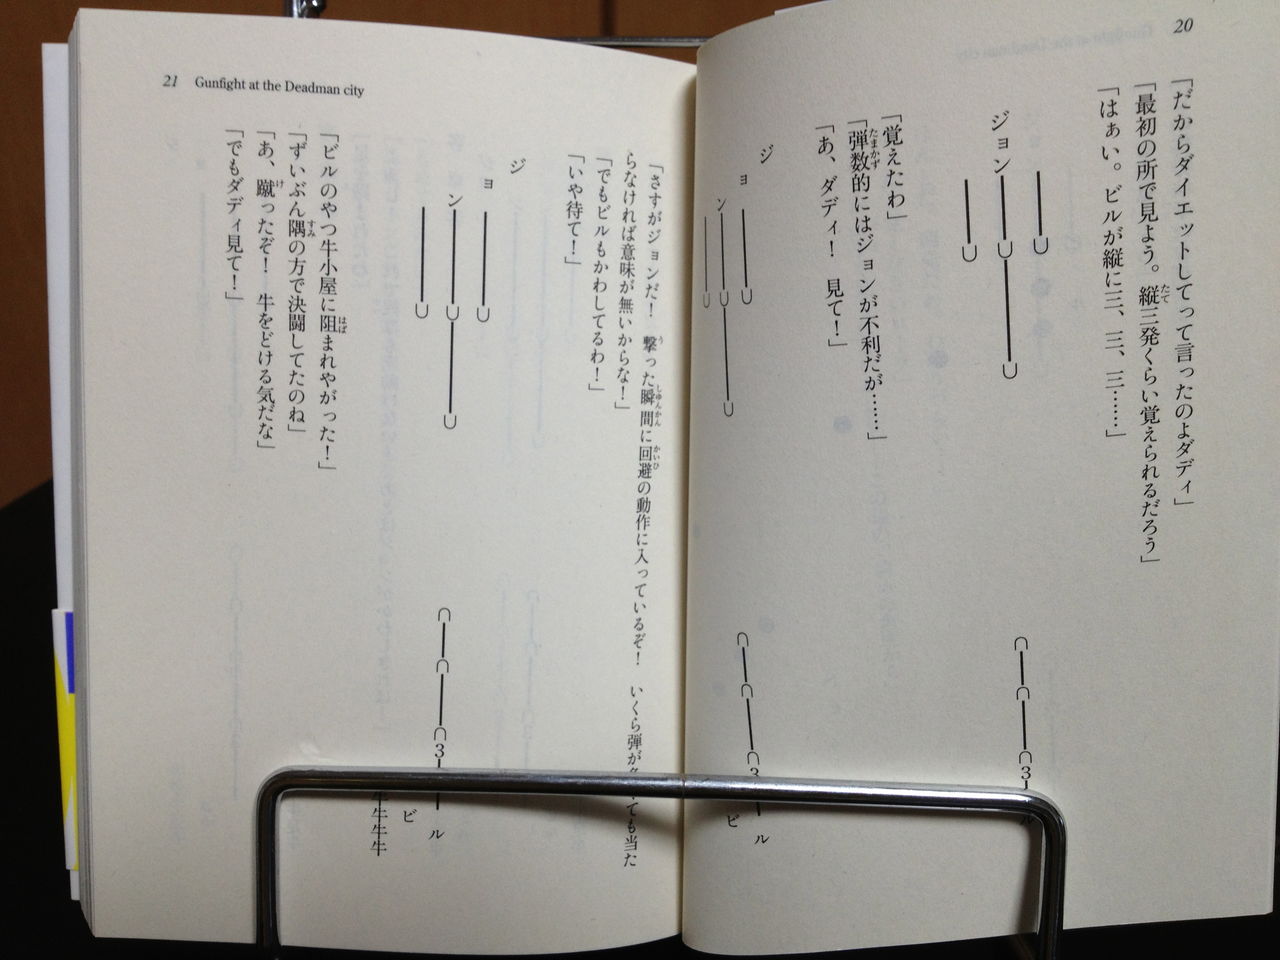 20
「だからダイエットしてって言ったのよダディ」
「最初の所で見よう。縦三発くらい覚えられるだろう」
「はぁい。ビルが縦に三、三、三……」
ジョン
3
ル
「覚えたわ」
「弾数的にはジョンが不利だが……」
「あ、ダディ！　見て！」
ジ
ョ
ン
3
ビ
ル
21 Gunfight at the Deadman city
「さすがジョンだ！　撃った瞬間に回避の動作に入っているぞ！　いくら弾が ても当た
らなければ意味が無いからな！」
「でもビルもかわしてるわ！」
「いや待て！」
ジ
ョ
ン
3
ビ
ル
牛牛牛
「ビルのやつ牛小屋に阻まれやがった！」
「ずいぶん隅の方で決闘してたのね」
「あ、蹴ったぞ！　牛をどける気だな」
「でもダディ見て！」